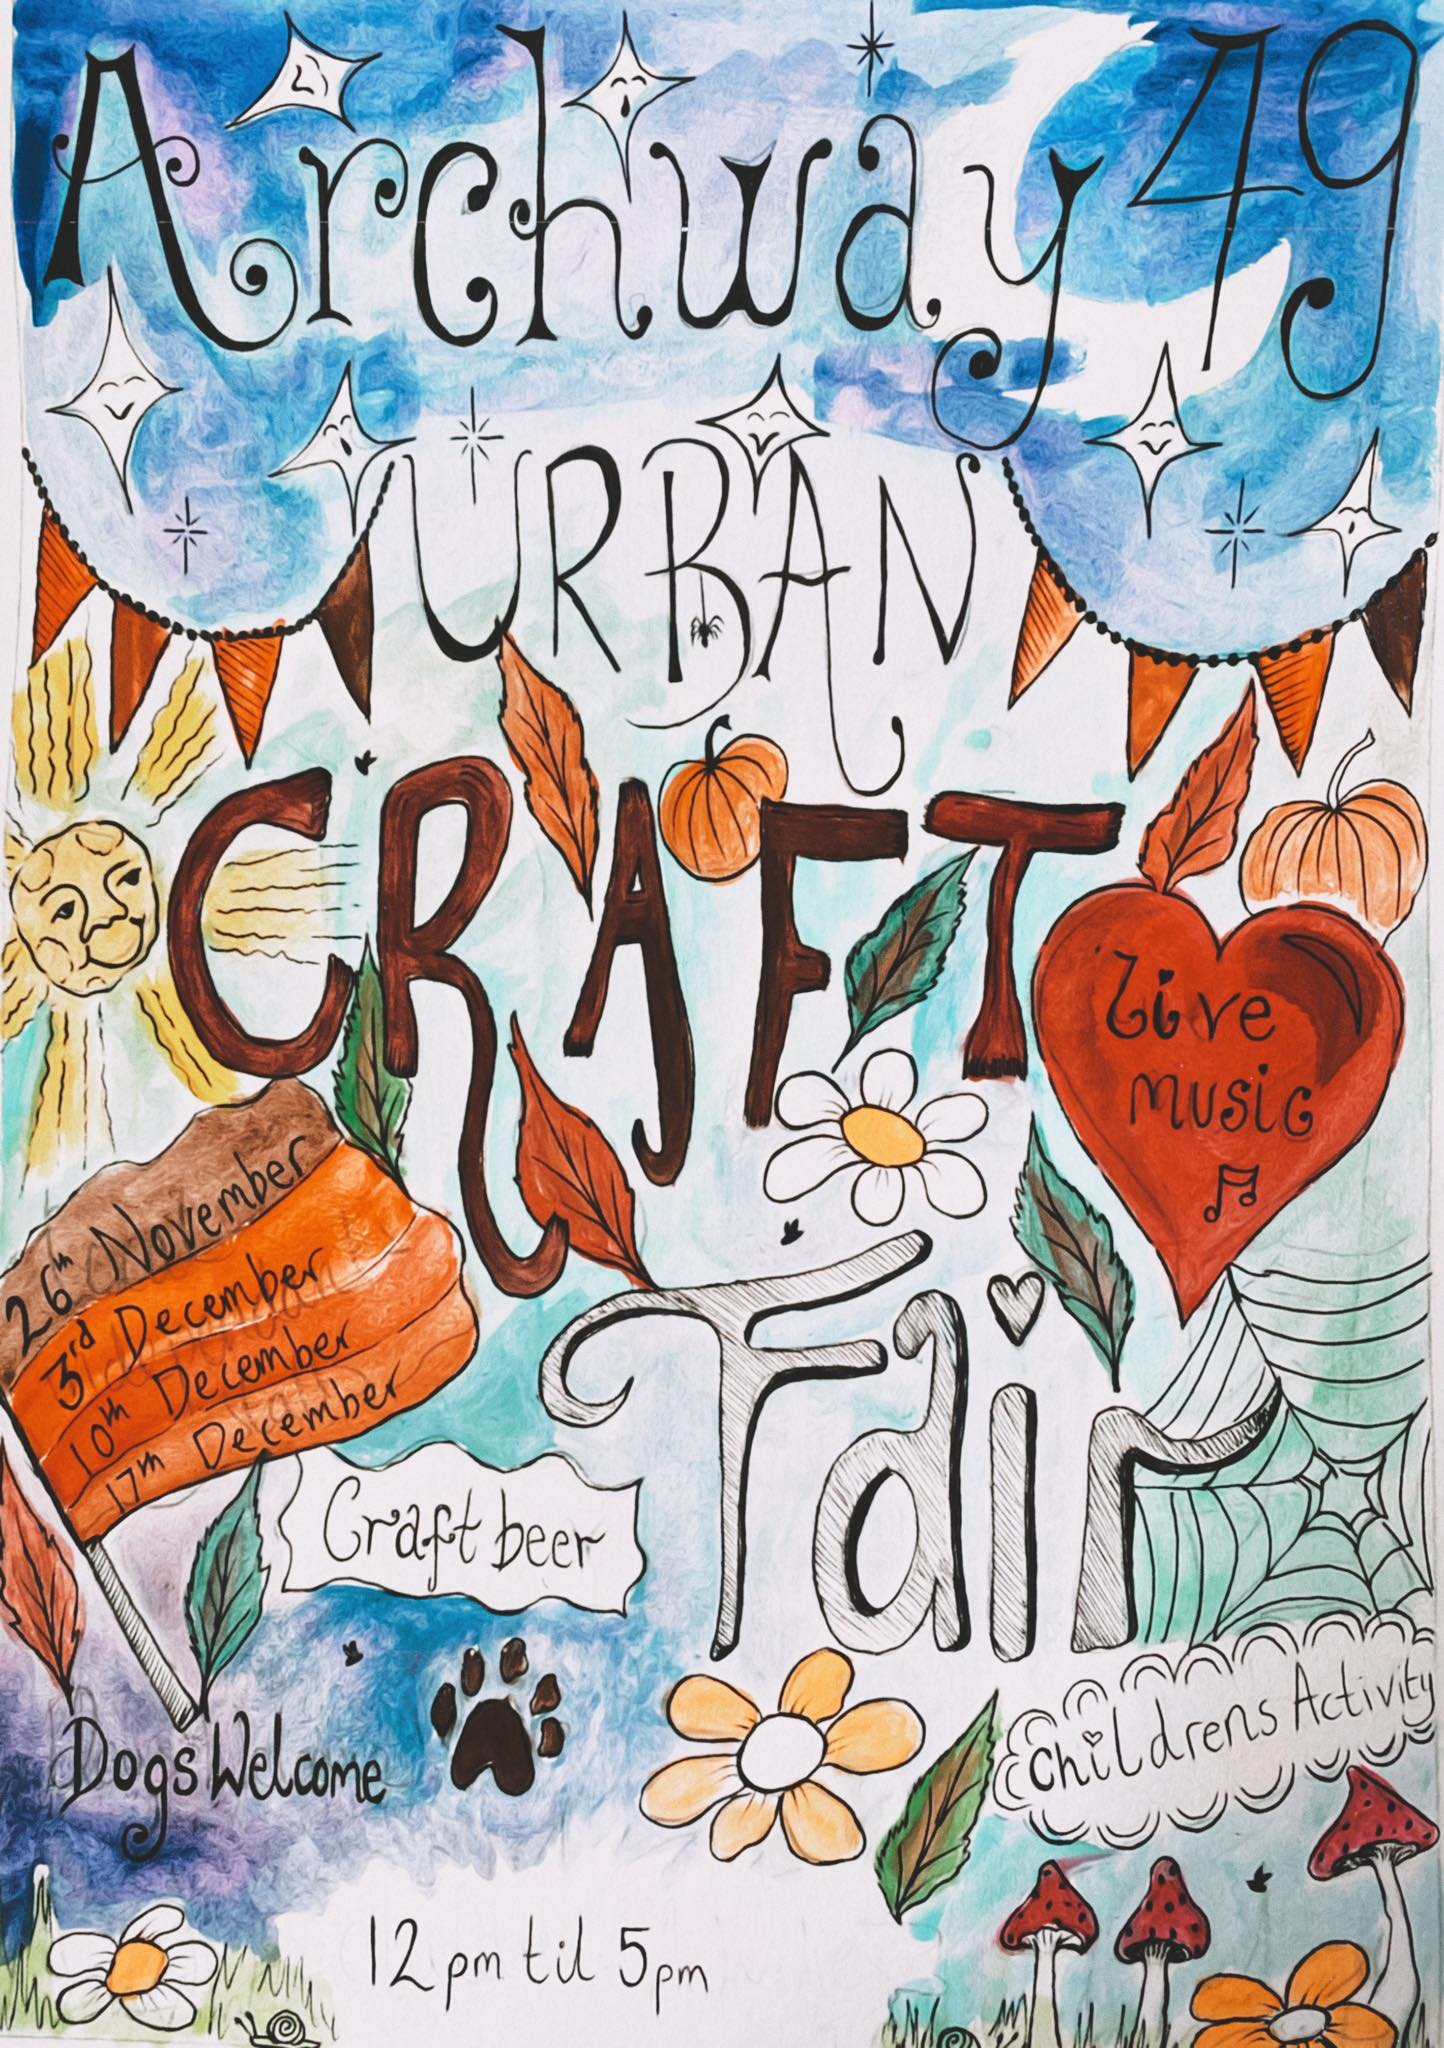 Archway 49
URBAN
CRAFT
Fair
Live
music
26th November
3rd December
10th December
17th December
Craft beer
Dogs Welcome
Childrens Activity
12pm til 5pm